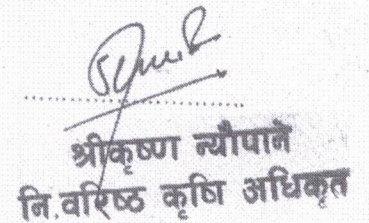 श्रीकृष्ण न्यौपाने
नि.वरिष्ठ कृषि अधिकृत